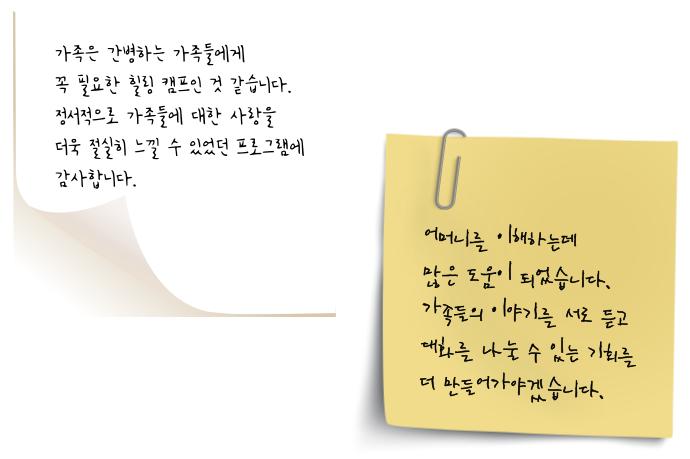 가족은 간병하는 가족들에게
꼭 필요한 힐링 캠프인 것 같습니다.
정서적으로 가족들에 대한 사랑을
더욱 절실히 느낄 수 있었던 프로그램에
감사합니다.
어머니를 이해하는데
많은 도움이 되었습니다.
가족들의 이야기를 서로 듣고
대화를 나눌 수 있는 기회를
더 만들어가야겠습니다.